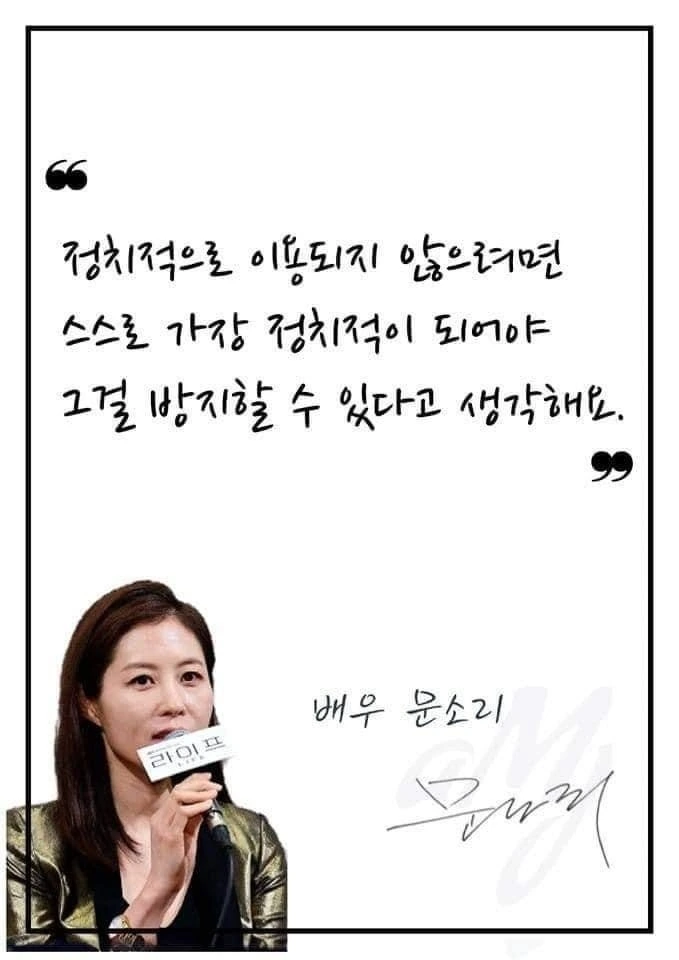 ❝
정치적으로 이용되지 않으려면
스스로 가장 정치적이 되어야
그걸 방지할 수 있다고 생각해요.
❞
배우 문소리
라이프
LIFE
문소리